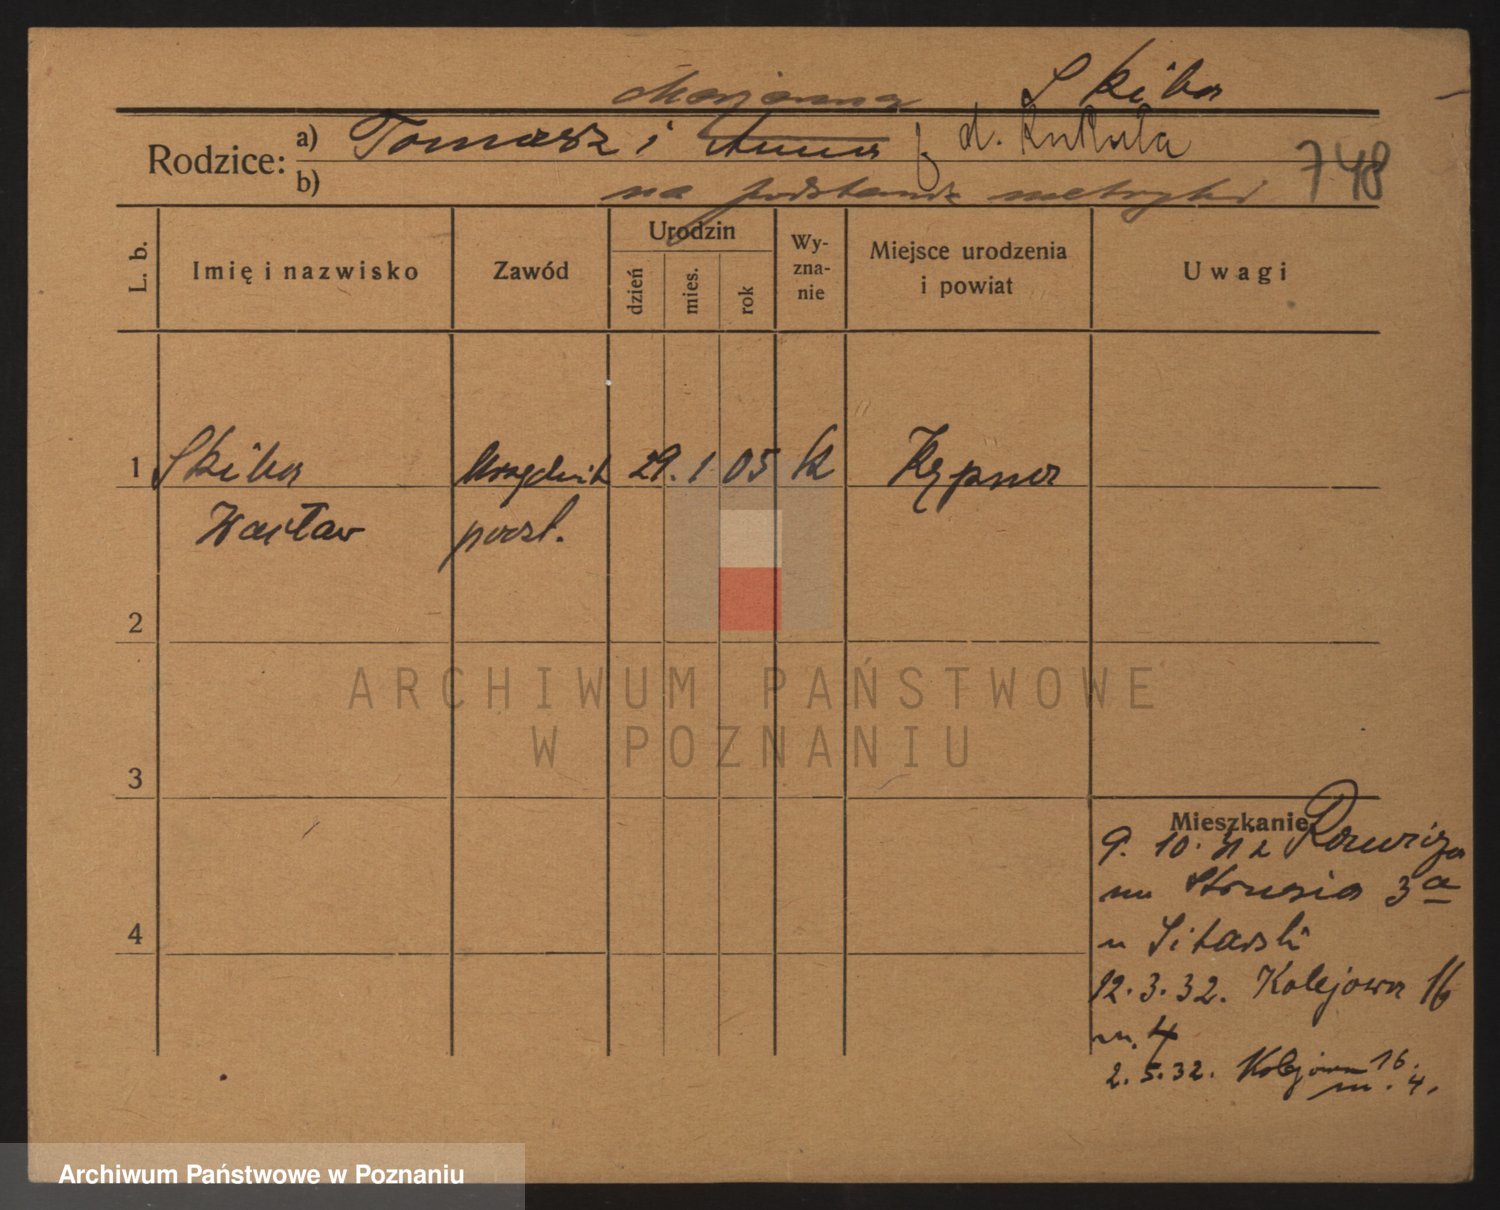 Marjanna Skiba
Rodzice: a) Tomasz i Anna d. Kukuła
b) na podstawie metryki 748
L. b. Imię i nazwisko Zawód Urodzin dzień mies. rok Wy-zna-nie Miejsce urodzenia i powiat Uwagi
1 Skiba Urzędnik 29. 1 05 k Kępno
Wacław poczt.
2
ARCHIWUM PAŃSTWOWE
W POZNANIU
3
Mieszkanie
9. 10. Rawicza
Strusia 3a
u Sitarski
12.3.32. Kolejowa 16
m. 4
2.5.32. Kolejowa 16.
m. 4.
4
Archiwum Państwowe w Poznaniu